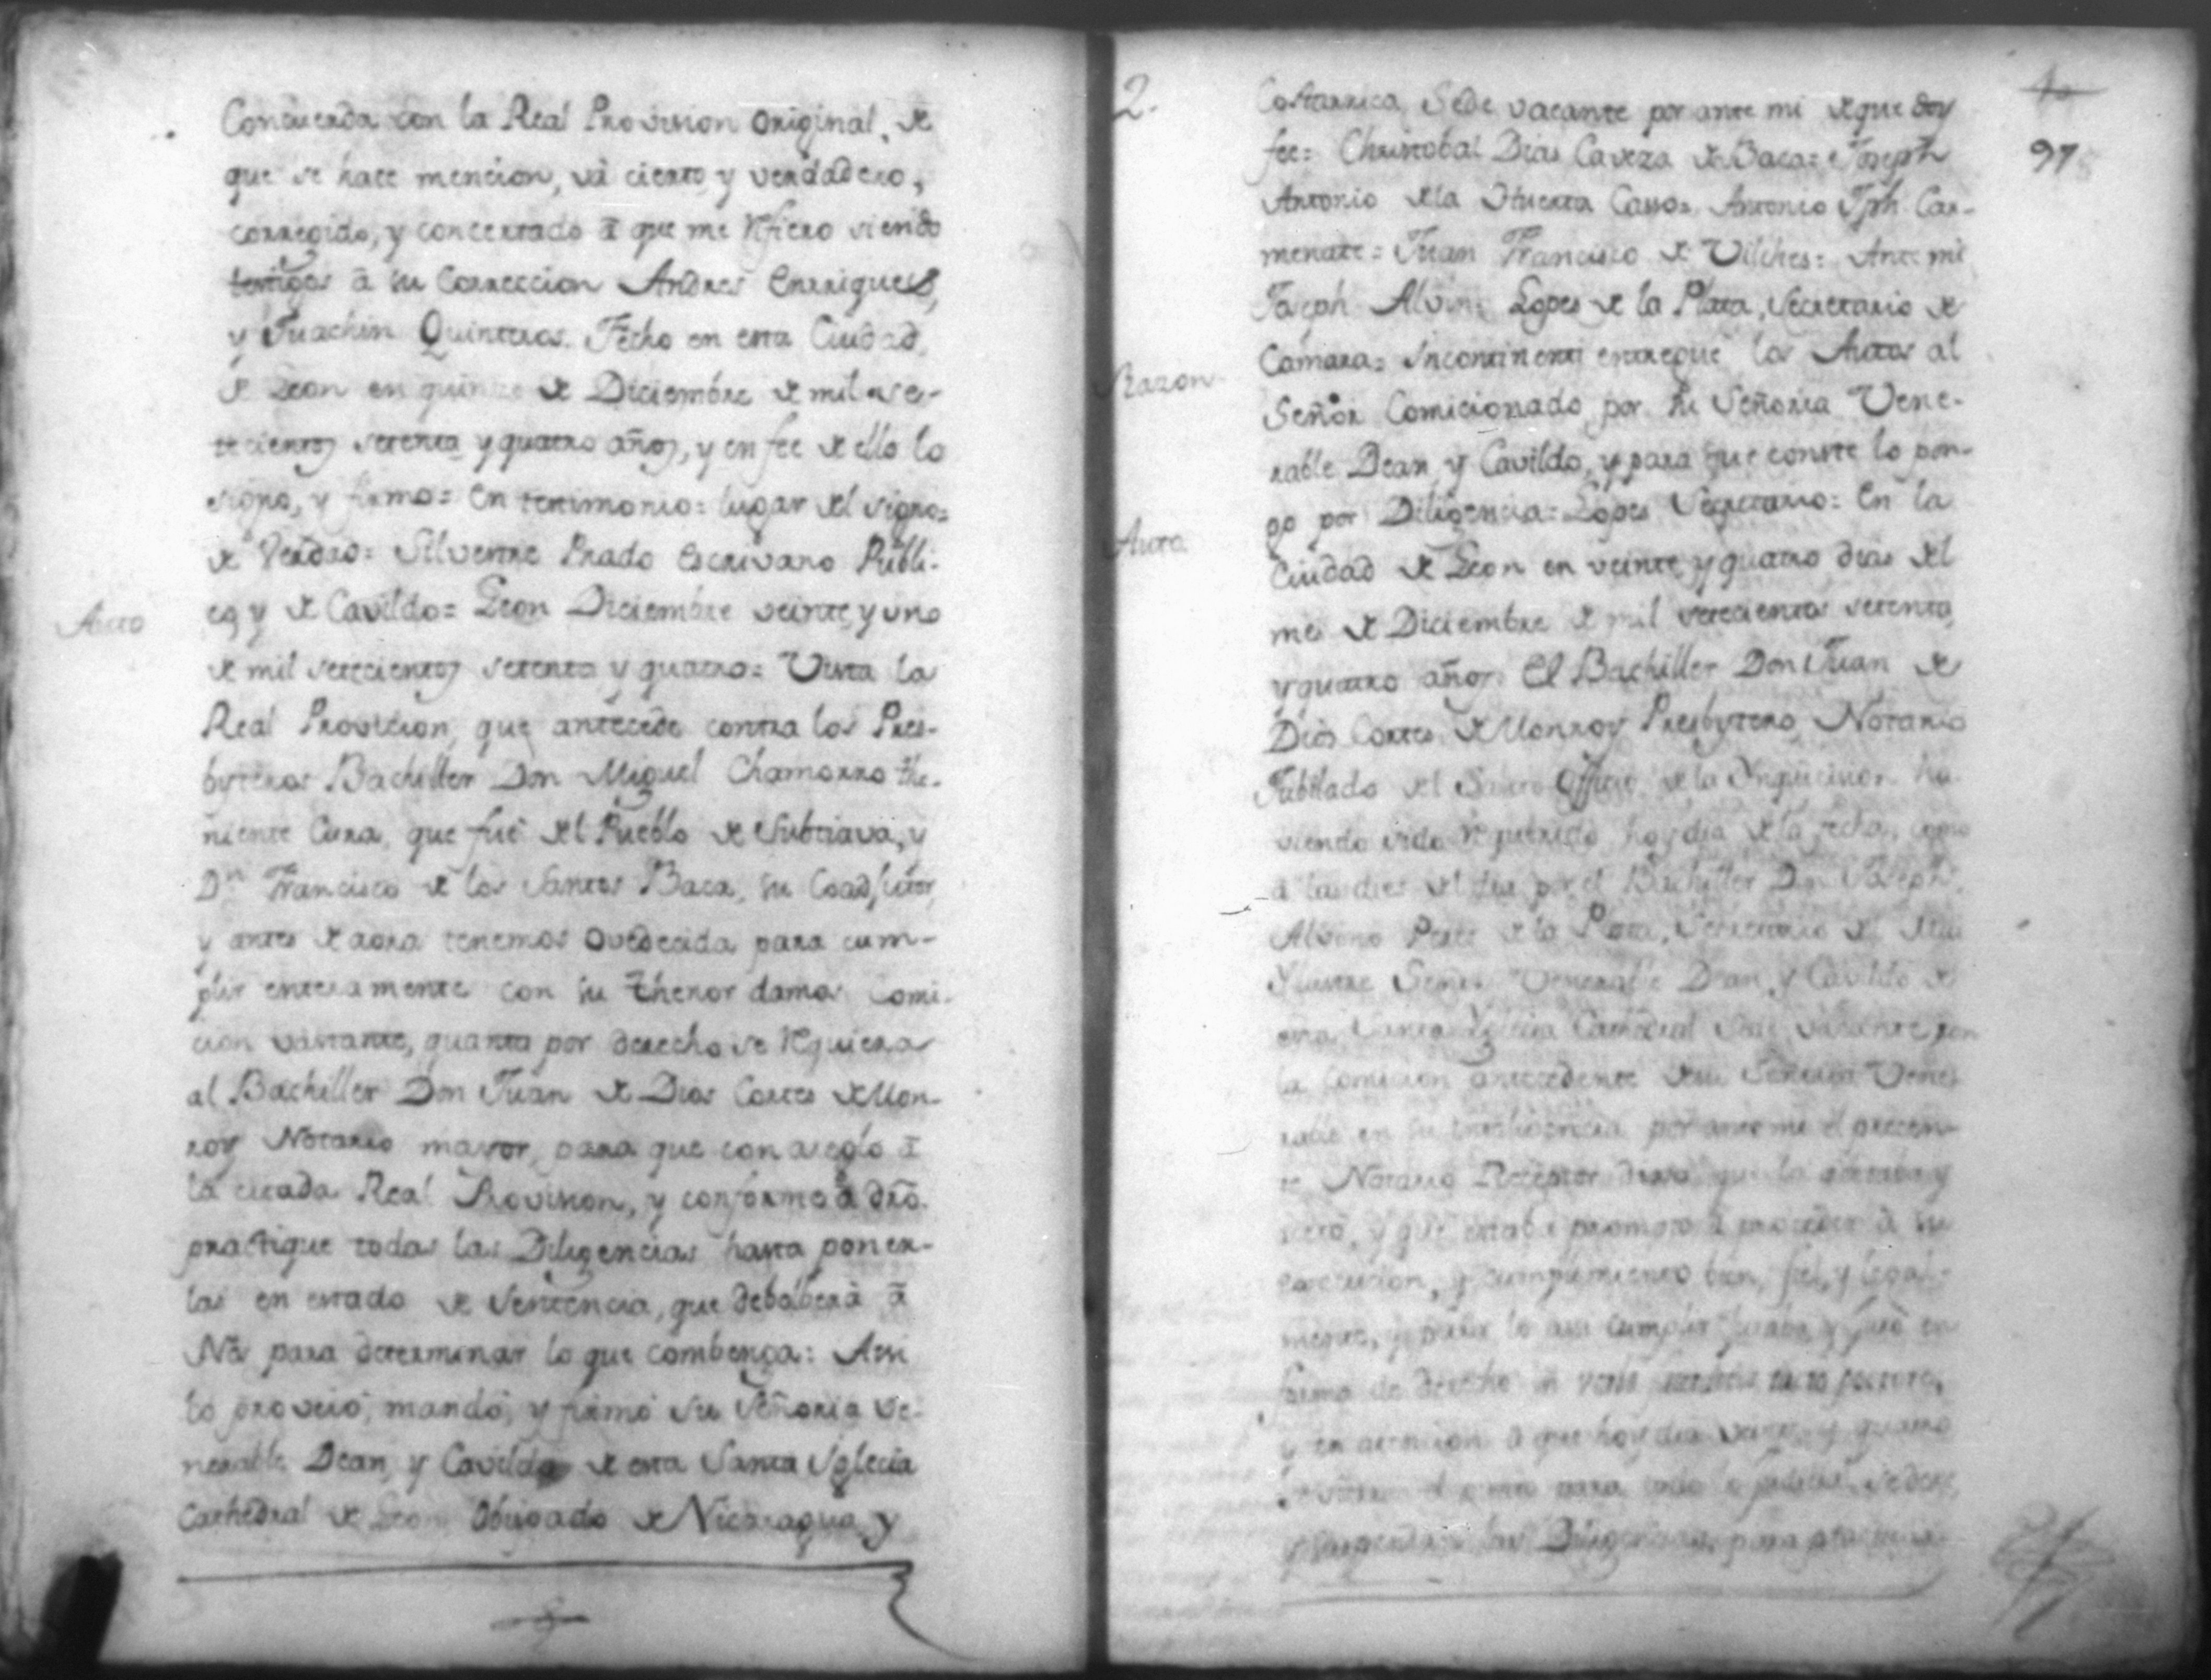 Concuerda con la Real Provision original, de
que se hace mencion, vá cierto, y verdadero,
corregido, y concertado á que me refiero siendo
testigos á su Correccion Andres Enrriques,
y Juachin Quinteros. Fecho en esta Ciudad
de Leon en quinse de Diciembre de mil se-
tecientos setenta y quatro años, y en fee de ello lo
signo, y firmo= En testimonio= lugar del signo=
de Verdad= Silvestre Prado Escrivano Públi-
co, y de Cavildo= Leon Diciembre veinte, y uno
Auto
de mil setecientos setenta y quatro= Vista la
Real Provicion, que antecede contra los Pres-
byteros Bachiller Don Miguel Chamorro the-
niente Cura, que fué del Pueblo de Subtiava, y
Dn. Francisco de los Santos Baca, su Coadjutor,
y antes de aora tenemos ovedecida para cum-
plir enteramente con su thenor damos Comi-
cion vastante, quanta por derecho se requiera
al Bachiller Don Juan de Dios Cortes de Mon-
roy Notario mayor, para que con areglo á
la citada Real Provision, y conforme á dro.
practique todas las Diligencias hasta poner-
las en estado de Sentencia, que debolberá á
Nos para determinar lo que combenga: Assi
lo proveió, mandó, y firmó su Señoria Ve-
nerable Dean, y Cavildo de esta Santa Iglecia
Cathedral de Leon Obispado de Nicaragua, y
2.
97
Costarrica Sede vacante por ante mi de que doy
fee= Christobal Dias Caveza de Baca= Joseph
Antonio de la Huerta Casso= Antonio Jph. Car-
menate= Juan Francisco de Vilches= Ante mi
Joseph Alvino Lopes de la Plata, Secretario de
Razon
Camara= Incontinenti entregué los Autos al
Señor Comicionado por su Señoria Vene-
rable Dean, y Cavildo, y para que conste lo pon-
go por Diligencia= Lopes Secretario= En la
Auto
Ciudad de Leon en veinte, y quatro dias del
mes de Diciembre de mil setecientos setenta,
y quatro años. El Bachiller Don Juan de
Dios Cortes de Monroy Presbytero, Notario
Jubilado del Santo Officio de la Inquicision ha-
viendo sido requerido hoy dia de la fecha, como
á las dies del dia por el Bachiller Don Joseph
Alvino de la Plata, Secretario de
Ylustre Señor Venerable Dean, y Cavildo de
esta Santa Iglecia Cathedral Sede vacante con
la Comicion antecedente de su Señoria Vene-
rable en su inteligencia por ante mi el precen-
te Notario Receptor dixo, que la acetaba y
acetó, y que estaba prompto á proceder á su
execucion, y cumplimiento bien, fiel, y legal-
mente, y para lo assi cumplir juraba, y juró en
forma de derecho in verbo sacerdotis tacto pectore,
y en atencion á que hoy dia veinte, y quatro
las Diligencias, para